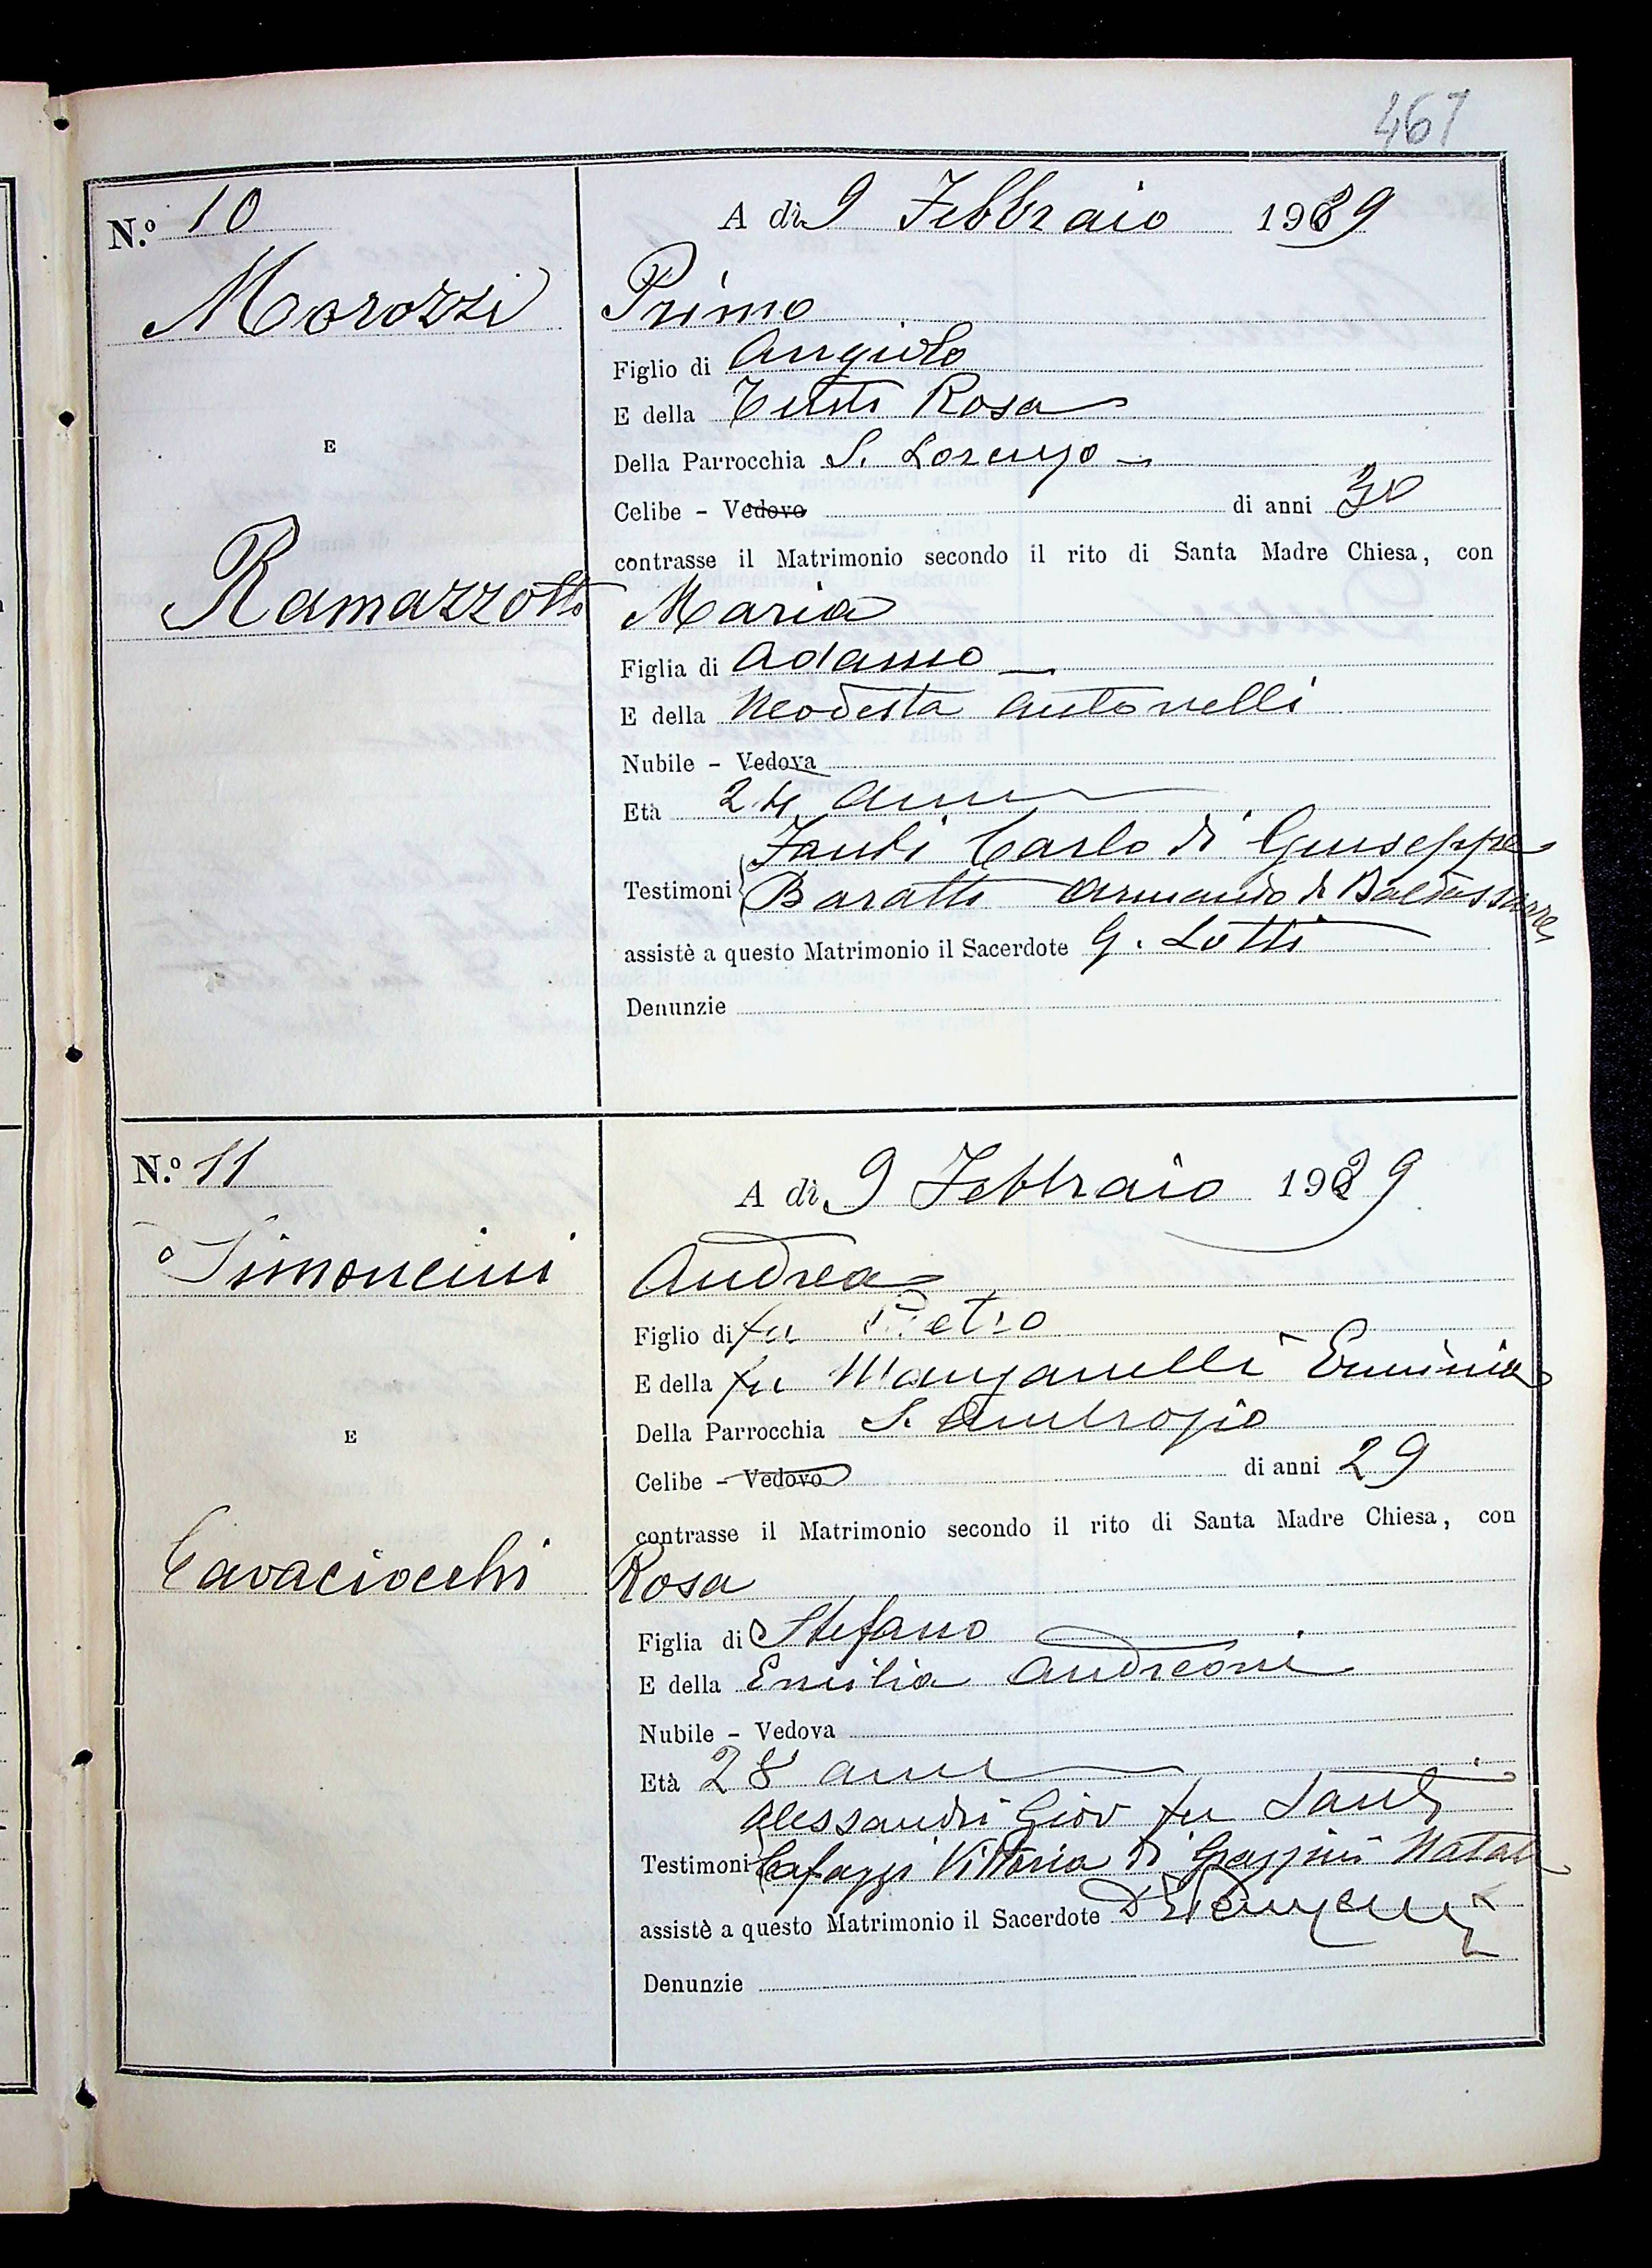 467
N.º 10
A dì 9 Febbraio 1929
Morozzi
Primo
Figlio di Angiolo
E della Testi Rosa
E
Della Parrocchia S. Lorenzo
Celibe - Vedovo di anni 30
contrasse il Matrimonio secondo il rito di Santa Madre Chiesa, con
Ramazzotti
Maria
Figlia di Adamo
E della Modesta Antonelli
Nubile - Vedova
Età 24 anni
Fanti Carlo di Giuseppe
Testimoni Baratti Armando di Baldassarre
assistè a questo Matrimonio il Sacerdote G. Lotti
Denunzie
N.º 11
A dì 9 Febbraio 1929
Simoncini
Andrea
Figlio di fu Pietro
E della fu Manganelli Erminia
Della Parrocchia S. Ambrogio
E
Celibe - Vedovo di anni 29
contrasse il Matrimonio secondo il rito di Santa Madre Chiesa, con
Cavaciocchi
Rosa
Figlia di Stefano
E della Emilia Andreoni
Nubile - Vedova
Età 28 anni
Alessandri Giov fu Santi
Testimoni Cafaggi Vittoria di Grazzini Natale
assistè a questo Matrimonio il Sacerdote
Denunzie